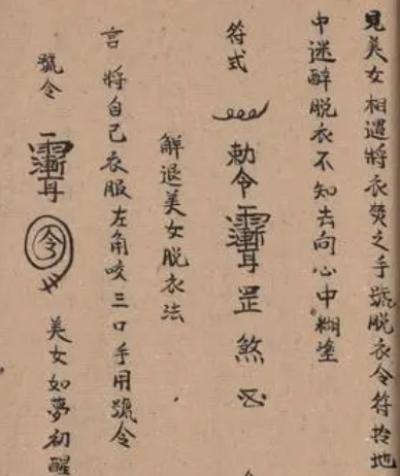 見美女相遇將衣焚之手號脱衣令符拎地
中迷醉脱衣不知去向心中糊塗
符式
勅令 罡煞
解退美女脱衣法
言將自己衣服左角咬三口手用號令
號令 令 美女如夢初醒